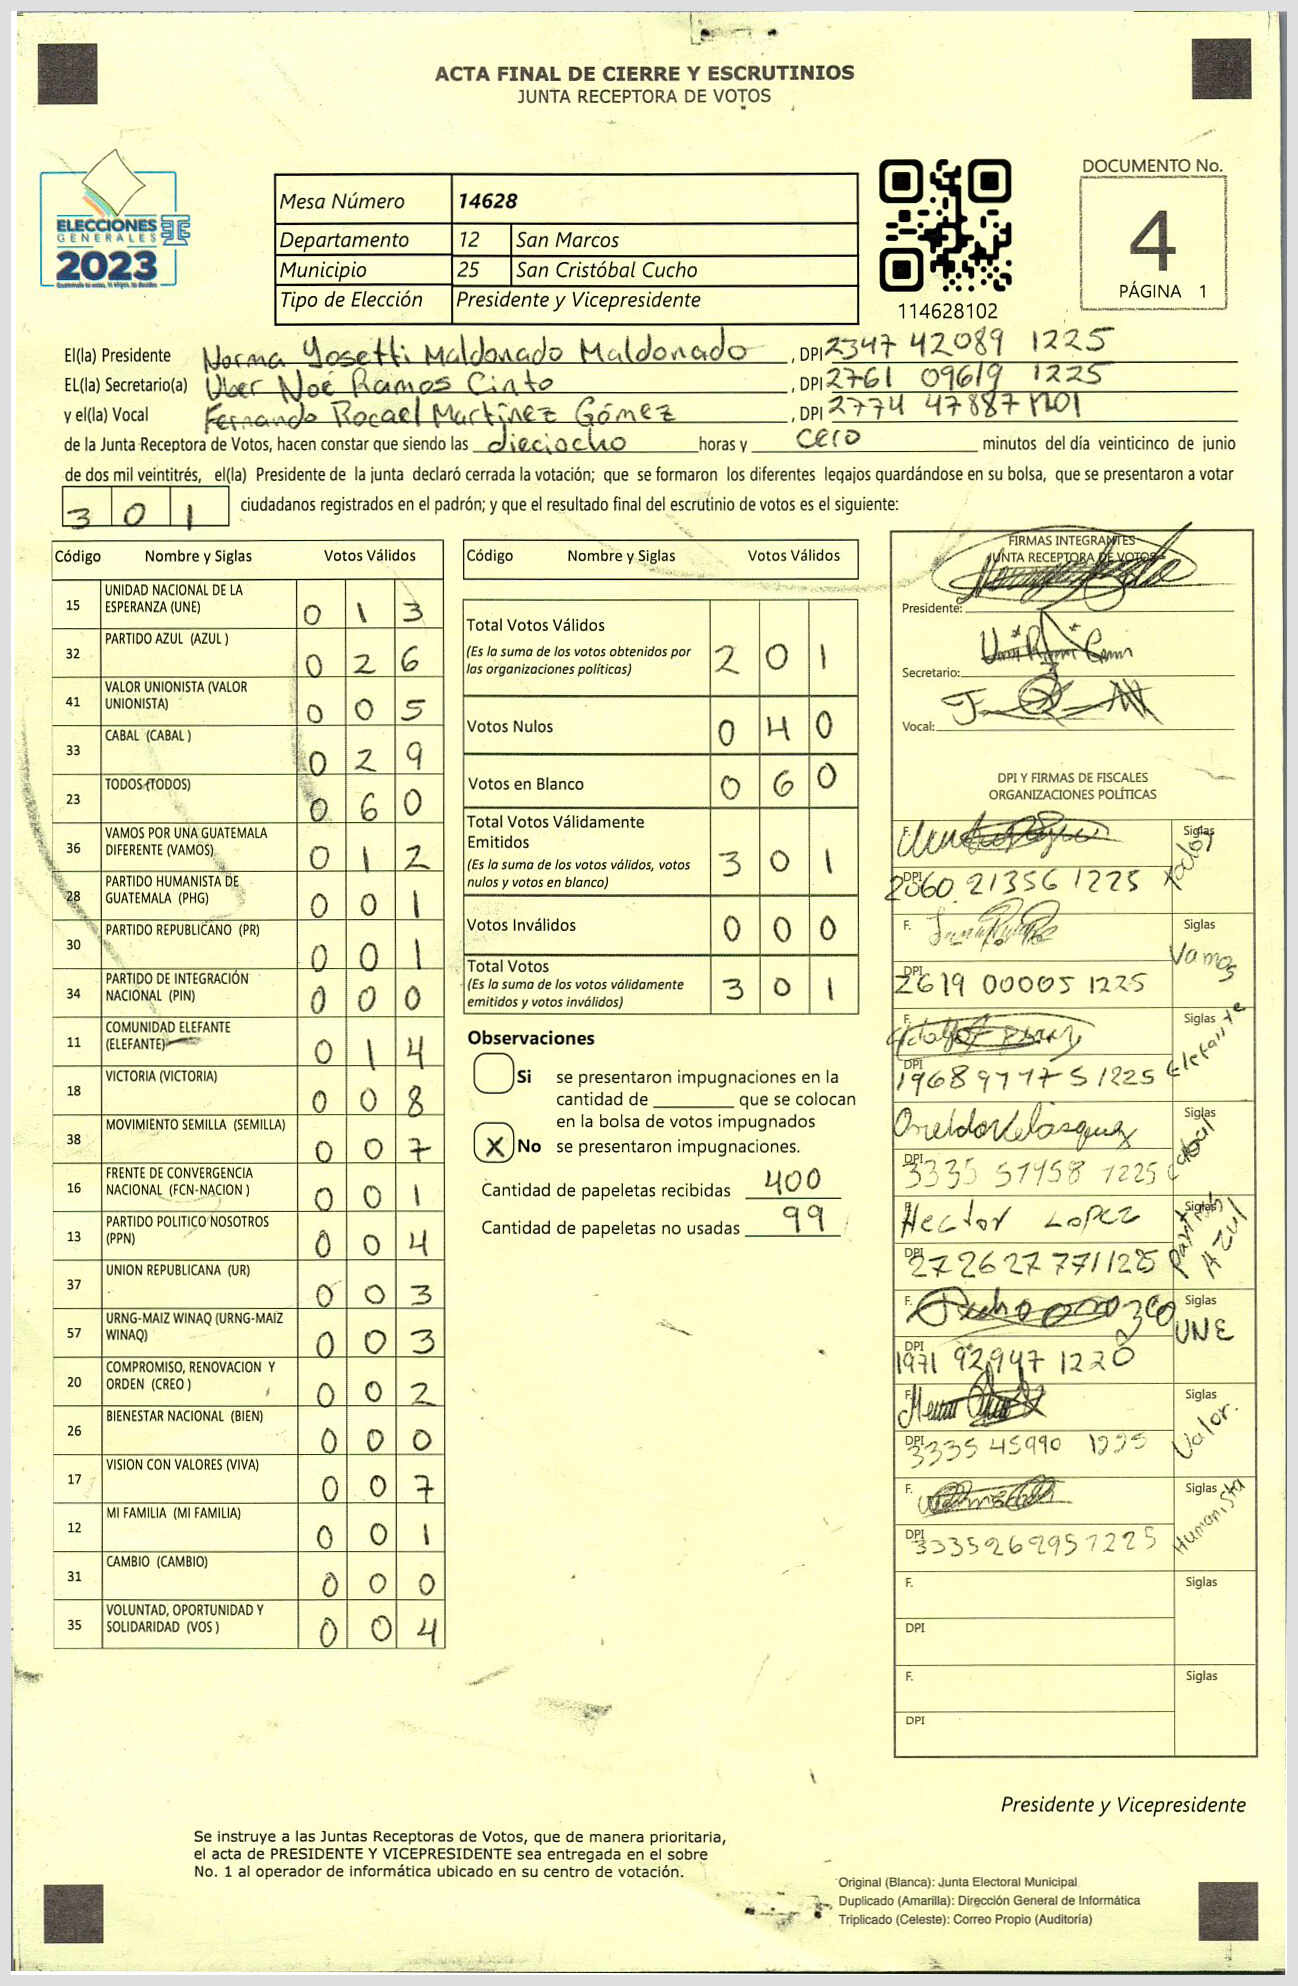 ACTA FINAL DE CIERRE Y ESCRUTINIOS
JUNTA RECEPTORA DE VOTOS
ELECCIONES
GENERALES
2023
Mesa Número 14628
Departamento 12 San Marcos
Municipio 25 San Cristóbal Cucho
Tipo de Elección Presidente y Vicepresidente
114628102
DOCUMENTO No.
4
PÁGINA 1
El(la) Presidente Norma Yosetti Maldonado Maldonado, DPI 2347 42089 1225
EL(la) Secretario(a) Uber Noé Ramos Cinto, DPI 2761 09619 1225
y el(la) Vocal Fernando Rocael Martínez Gómez, DPI 2774 47887 1201
de la Junta Receptora de Votos, hacen constar que siendo las dieciocho horas y cero minutos del día veinticinco de junio
de dos mil veintitrés, el(la) Presidente de la junta declaró cerrada la votación; que se formaron los diferentes legajos guardándose en su bolsa, que se presentaron a votar
301 ciudadanos registrados en el padrón; y que el resultado final del escrutinio de votos es el siguiente:
Código Nombre y Siglas Votos Válidos
15 UNIDAD NACIONAL DE LA ESPERANZA (UNE) 0 1 3
32 PARTIDO AZUL (AZUL ) 0 2 6
41 VALOR UNIONISTA (VALOR UNIONISTA) 0 0 5
33 CABAL (CABAL ) 0 2 9
23 TODOS (TODOS) 0 6 0
36 VAMOS POR UNA GUATEMALA DIFERENTE (VAMOS) 0 1 2
28 PARTIDO HUMANISTA DE GUATEMALA (PHG) 0 0 1
30 PARTIDO REPUBLICANO (PR) 0 0 1
34 PARTIDO DE INTEGRACIÓN NACIONAL (PIN) 0 0 0
11 COMUNIDAD ELEFANTE (ELEFANTE) 0 1 4
18 VICTORIA (VICTORIA) 0 0 8
38 MOVIMIENTO SEMILLA (SEMILLA) 0 0 7
16 FRENTE DE CONVERGENCIA NACIONAL (FCN-NACION ) 0 0 1
13 PARTIDO POLITICO NOSOTROS (PPN) 0 0 4
37 UNION REPUBLICANA (UR) 0 0 3
57 URNG-MAIZ WINAQ (URNG-MAIZ WINAQ) 0 0 3
20 COMPROMISO, RENOVACION Y ORDEN (CREO ) 0 0 2
26 BIENESTAR NACIONAL (BIEN) 0 0 0
17 VISION CON VALORES (VIVA) 0 0 7
12 MI FAMILIA (MI FAMILIA) 0 0 1
31 CAMBIO (CAMBIO) 0 0 0
35 VOLUNTAD, OPORTUNIDAD Y SOLIDARIDAD (VOS ) 0 0 4
Código Nombre y Siglas Votos Válidos
Total Votos Válidos 2 0 1
(Es la suma de los votos obtenidos por
las organizaciones políticas)
Votos Nulos 0 4 0
Votos en Blanco 0 6 0
Total Votos Válidamente
Emitidos 3 0 1
(Es la suma de los votos válidos, votos
nulos y votos en blanco)
Votos Inválidos 0 0 0
Total Votos 3 0 1
(Es la suma de los votos válidamente
emitidos y votos inválidos)
Observaciones
Si se presentaron impugnaciones en la
cantidad de ________ que se colocan
en la bolsa de votos impugnados
X No se presentaron impugnaciones.
Cantidad de papeletas recibidas 400
Cantidad de papeletas no usadas 99
FIRMAS INTEGRANTES
JUNTA RECEPTORA DE VOTOS
Presidente:
Secretario:
Vocal:
DPI Y FIRMAS DE FISCALES
ORGANIZACIONES POLÍTICAS
F. Siglas todos
DPI 2060 21356 1225
F. Siglas Vamos
DPI 2619 00005 1225
F. Siglas Elefante
DPI 1968 97775 1225
Oneldo Velásquez Siglas cabal
DPI 3335 57458 1225
F. Hector Lopez Siglas Partido Azul
DPI 2726 27771 1225
F. Siglas UNE
DPI 1971 92947 1220
F. Siglas Valor.
DPI 3335 45990 1225
F. Siglas Humanista
DPI 3335269951225
F. Siglas
DPI
F. Siglas
DPI
Presidente y Vicepresidente
Se instruye a las Juntas Receptoras de Votos, que de manera prioritaria,
el acta de PRESIDENTE Y VICEPRESIDENTE sea entregada en el sobre
No. 1 al operador de informática ubicado en su centro de votación.
Original (Blanca): Junta Electoral Municipal
Duplicado (Amarilla): Dirección General de Informática
Triplicado (Celeste): Correo Propio (Auditoría)